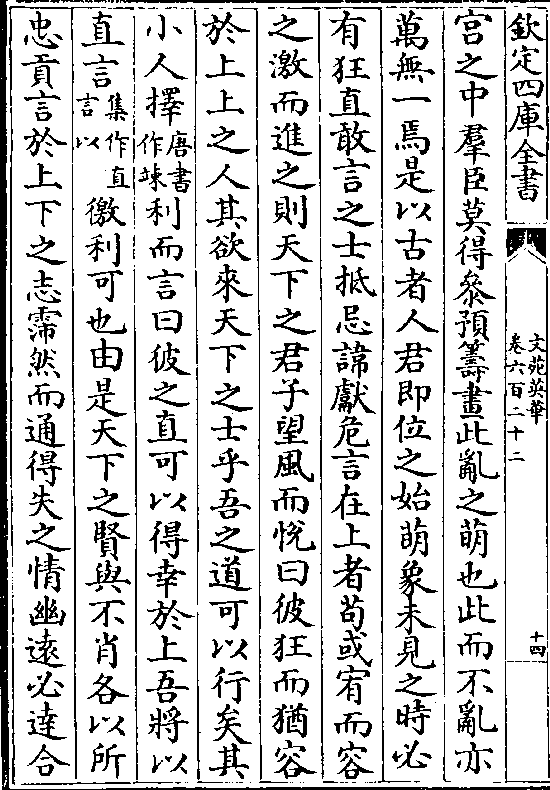 欽定四庫全書
文苑英華
卷六百二十二
十四
宫之中羣臣莫得叅預籌畫此亂之萌也此而不亂亦
萬無一焉是以古者人君即位之始萌象未見之時必
有狂直敢言之士抵忌諱獻危言在上者苟或宥而容
之激而進之則天下之君子望風而悅曰彼狂而猶容
於上上之人其欲來天下之士乎吾之道可以行矣其
小人擇唐書作竦利而言曰彼之直可以得幸於上吾將以
直言集作直言以徼利可也由是天下之賢與不肖各以所
忠貢言於上下之志霈然而通得失之情幽逺必達合